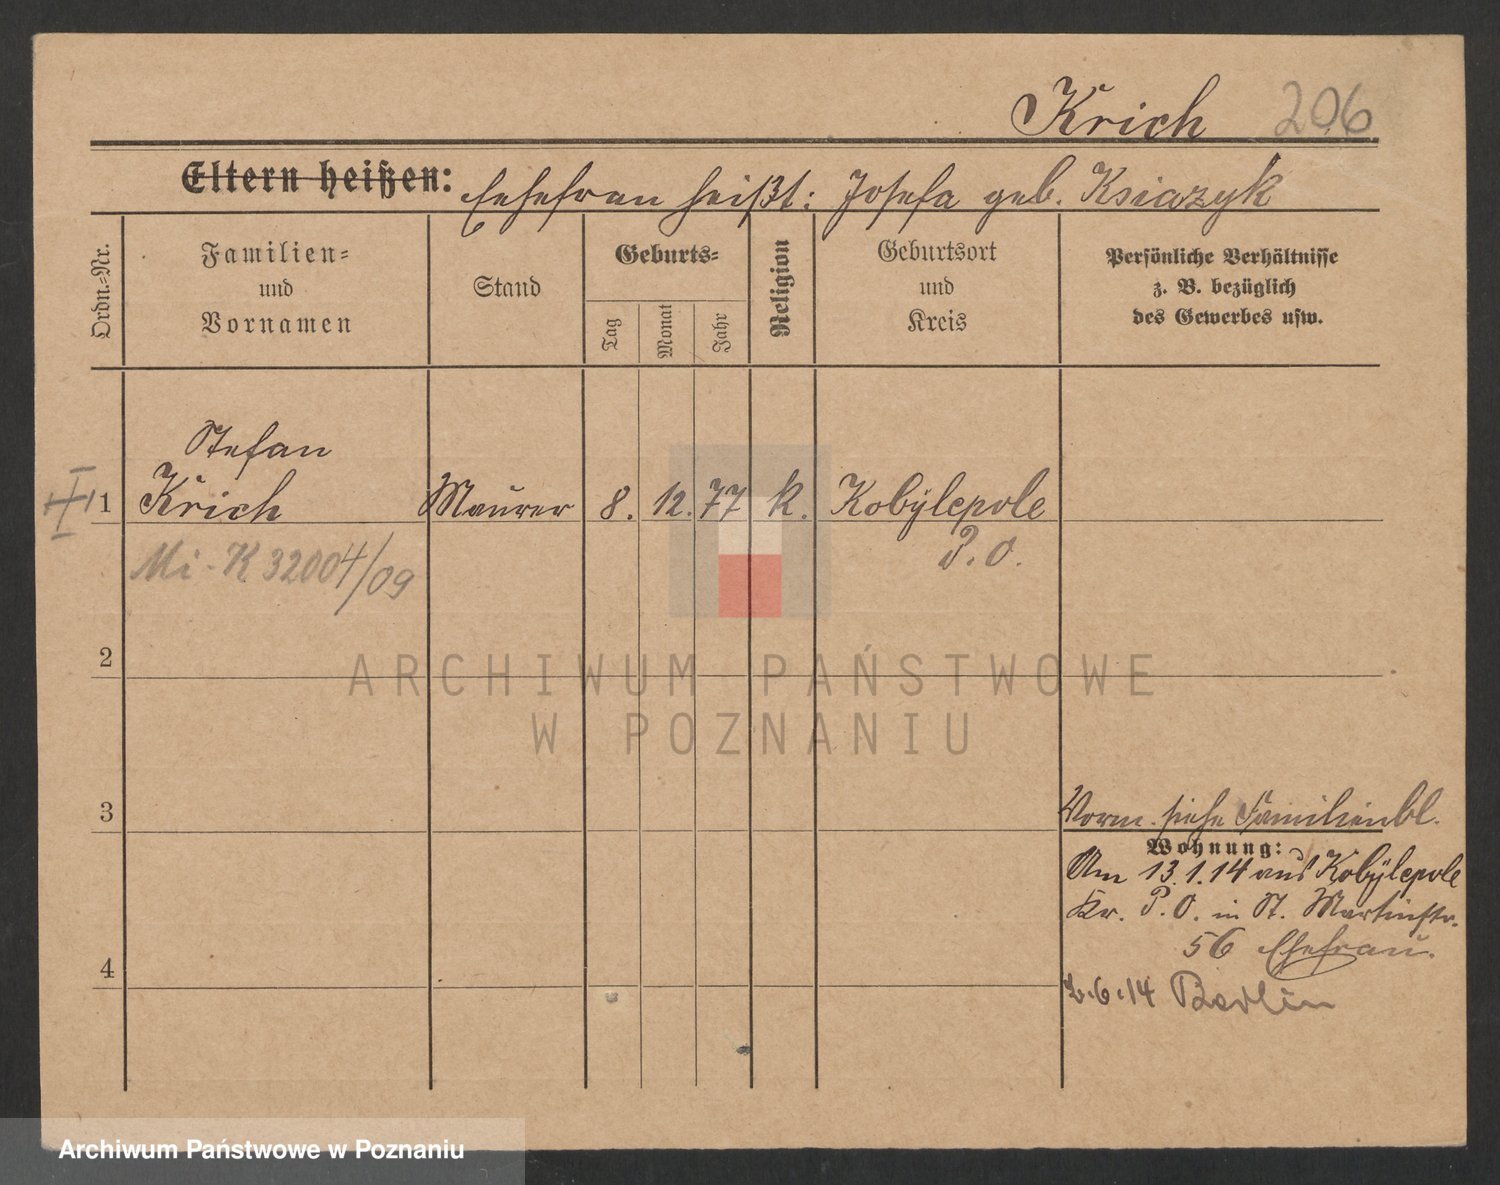 Krich 206
Eltern heißen: Ehefrau heißt: Josefa geb. Ksiazyk
Ordn.-Nr.
Familien-
und
Vornamen
Stand
Geburts-
Tag
Monat
Jahr
Religion
Geburtsort
und
Kreis
Persönliche Verhältnisse
z. B. bezüglich
des Gewerbes usw.
Stefan
1 Krich Maurer 8. 12. 77 k. Kobylepole
P. O.
Mi - K 32004/09
2
ARCHIWUM PAŃSTWOWE
W POZNANIU
3
Vorm. siehe Familienbl.
Wohnung:
Am 13.1.14 aus Kobylepole
Kr. P. O. in St. Martinstr.
56 Ehefrau.
4
2.6.14 Berlin
Archiwum Państwowe w Poznaniu